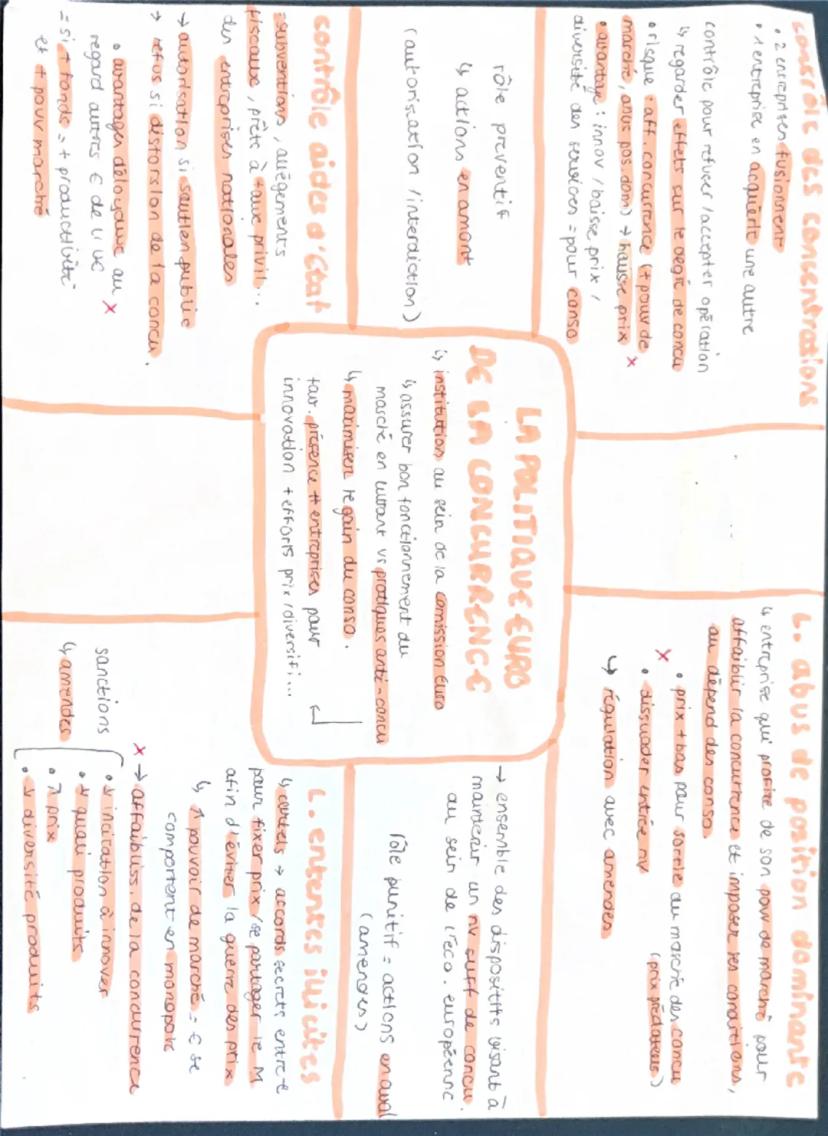 contrôle des concentrations
• 2 entreprises fusionnent
• 1 entreprise en acquière une autre
contrôle pour refuser / accepter opération
↳ regarder effets sur le degré de concu
• risque : aff. concurrence (+ pouv de
marché, abus pos. dom) → hausse prix ×
• avantage : innov / baisse prix /
diversité des services = pour conso
rôle preventif
↳ actions en amont
(autorisation / interdiction)
contrôle aides d'État
: subventions, allègements
fiscaux, prête à taux privil...
des entreprises nationales
→ autorisation si soutien public
→ refus si distorsion de la concu.
• avantages déloyaux au ×
regard autres € de l'UE
= si + fonds = + productivité
et + pouv marché
LA POLITIQUE EURO
DE LA CONCURRENCE
↳ institution au sein de la comission Euro
↳ assurer bon fonctionnement du
marché en luttant vs pratiques anti-concu
↳ maximiser le gain du conso.
fav. présence # entreprises pour
innovation + efforts prix / diversifi...
L. abus de position dominante
↳ entreprise qui profite de son pouv de marché pour
affaiblir la concurrence et imposer ses conditions,
au dépend des conso.
× • prix + bas pour sortie du marché des concu
(prix prédateurs)
• dissuader entrée nv
↳ régulation avec amendes
→ ensemble des dispositifs visant à
maintenir un nv suff de concu.
au sein de l'éco. européenne
rôle punitif = actions en aval
(amendes)
L. ententes illicites
↳ cartels → accords secrets entre €
pour fixer prix / se partager le M
afin d'éviter la guerre des prix
↳ ↑ pouvoir de marché = € se
comportent en monopole
× → affaibliss. de la concurrence
• ↓ incitation à innover
• ↓ quali produits
• ↗ prix
• ↓ diversité produits
sanctions
↳ amendes